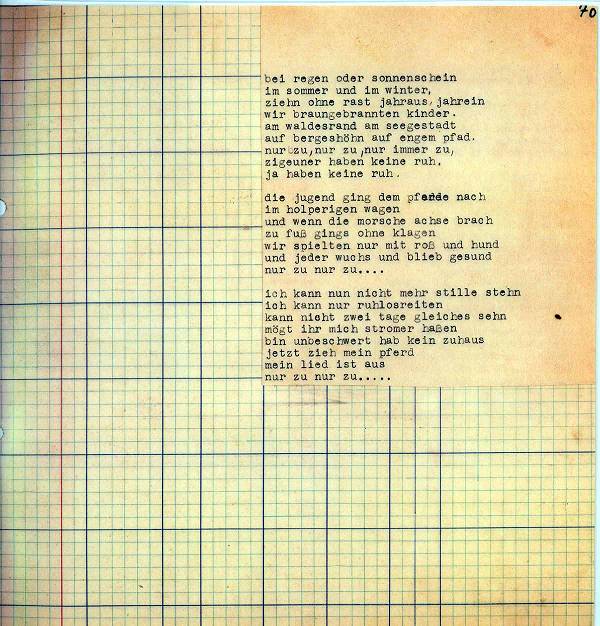 40
bei regen oder sonnenschein
im sommer und im winter,
ziehn ohne rast jahraus, jahrein
wir braungebrannten kinder.
am waldesrand am seegestadt
auf bergeshöhn auf engem pfad.
nur zu, nur zu, nur immer zu,
zigeuner haben keine ruh.
ja haben keine ruh.

die jugend ging dem pferde nach
im holperigen wagen
und wenn die morsche achse brach
zu fuß gings ohne klagen
wir spielten nur mit roß und hund
und jeder wuchs und blieb gesund
nur zu nur zu....

ich kann nun nicht mehr stille stehn
ich kann nur ruhlosreiten
kann nicht zwei tage gleiches sehn
mögt ihr mich stromer haßen
bin unbeschwert hab kein zuhaus
jetzt zieh mein pferd
mein lied ist aus
nur zu nur zu.....